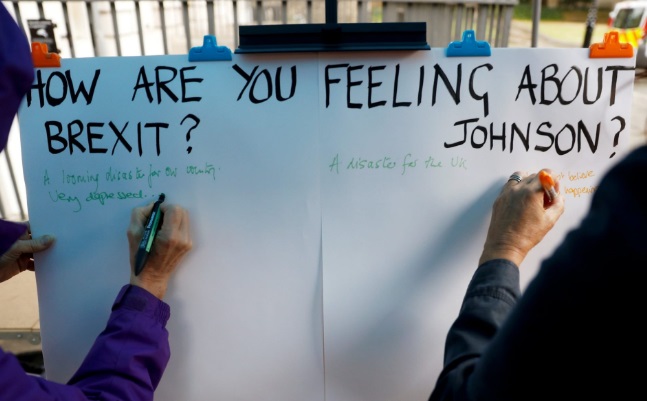 HOW ARE YOU FEELING ABOUT
BREXIT?
JOHNSON?
A looming disaster for our country.
Very depressed..
A disaster for the UK
believe
happening